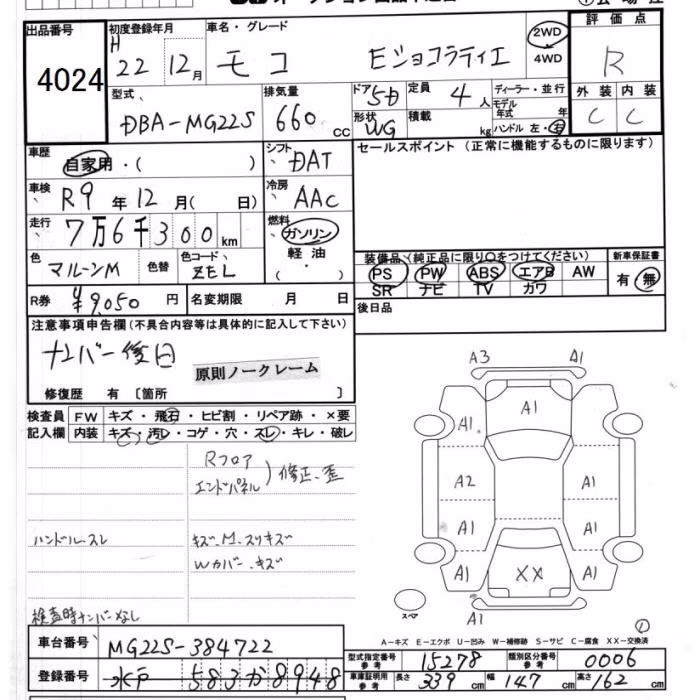 出品番号
4024
初度登録年月
H 22 12月
車名・グレード
モコ Eショコラティエ
2WD
4WD
評価点
R
外装 内装
C C
型式
DBA-MG22S
排気量
660 cc
ドア 5D
形状 WG
定員 4人
積載 kg
ディーラー・並行
モデル年式 年
ハンドル 左・右
車歴
自家用・( )
シフト
DAT
セールスポイント (正常に機能するものに限ります)
車検
R9年12月( 日)
冷房
AAC
走行
7万6千300km
燃料
ガソリン
軽油
・( )
色
マルーンM
色替
色コード
ZEL
装備品(純正品に限り○をつけてください)
PS PW ABS エアB AW
SR ナビ TV カワ
新車保証書
有 無
R券 ¥9,050円
名変期限 月 日
後日品
注意事項申告欄(不具合内容等は具体的に記入して下さい)
ナンバー後日
原則ノークレーム
修復歴 有 〔箇所 〕
検査員 FW キズ・飛石・ヒビ割・リペア跡・×要
記入欄 内装 キズ・汚レ・コゲ・穴・スレ・キレ・破レ
Rフロア
エンドパネル ) 修正、歪
ハンドルスレ
キズ、M、スリキズ
Wカバー、キズ
検査時ナンバーなし
A3 A1
A1
A1
A2 A1
A1 A1
A1 XX A1
A1
スペア
1
A-キズ E-エクボ U-凹み W-補修跡 S-サビ C-腐食 XX-交換済
車台番号 MG22S-384722
登録番号 水戸 583か8948
型式指定番号 参考 15278
類別区分番号 参考 0006
車庫証明用 参考 長さ 339cm 幅 147cm 高さ 162cm